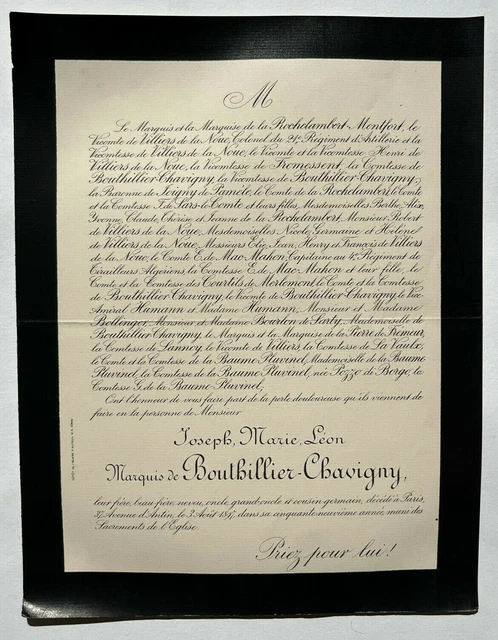 M
Le Marquis et la Marquise de la Rochelambert-Montfort, le
Vicomte de Villiers de la Noue, Colonel du 21e Régiment d'Artillerie et la
Vicomtesse de Villiers de la Noue, le Vicomte et la Vicomtesse Henri de
Villiers de la Noue, la Vicomtesse de la Comtesse de
Bouthillier-Chavigny, la Vicomtesse de Bouthillier-Chavigny,
la Baronne de Joigny de Pamèle, le Comte de la Rochelambert, le Comte
et la Comtesse F. de Sars-le-Comte et leurs filles, Mesdemoiselles Berthe, Alix,
Yvonne, Claude, Thérèse et Jeanne de la Rochelambert, Monsieur Robert
de Villiers de la Noue, Mesdemoiselles Nicole, Germaine et Hélène
de Villiers de la Noue, Messieurs Elie, Jean, Henry et François de Villiers
de la Noue, le Comte E. de Mac-Mahon, Capitaine au 4e Régiment de
Tirailleurs Algériens, la Comtesse E. de Mac-Mahon et leur fille, le
Comte et la Comtesse des Courtils de Merlemont, le Comte et la Comtesse
de Bouthillier-Chavigny, le Vicomte de Bouthillier-Chavigny, le Vice-
Amiral Humann et Madame Humann, Monsieur et Madame
Bollenger, Monsieur et Madame Bourdon de Sarty, Mademoiselle de
Bouthillier Chavigny, le Marquis et la Marquise de la Pierre de Fremeur,
la Comtesse de Lannoy, le Vicomte de Villiers, la Comtesse de La Vaulx,
le Comte et la Comtesse de la Baume Pluvinel, Mademoiselle de la Baume
Pluvinel, la Comtesse de la Baume-Pluvinel, née Pozzo di Borgo, la
Comtesse G. de la Baume-Pluvinel,
Ont l'honneur de vous faire part de la perte douloureuse qu'ils viennent de
faire en la personne de Monsieur
Joseph, Marie, Léon
Marquis de Bouthillier-Chavigny,
leur frère, beau-frère, neveu, oncle, grand-oncle et cousin germain, décédé à Paris,
37, Avenue d'Antin, le 3 Août 1897, dans sa cinquante-neuvième année, muni des
Sacrements de l'Eglise.
Priez pour lui!